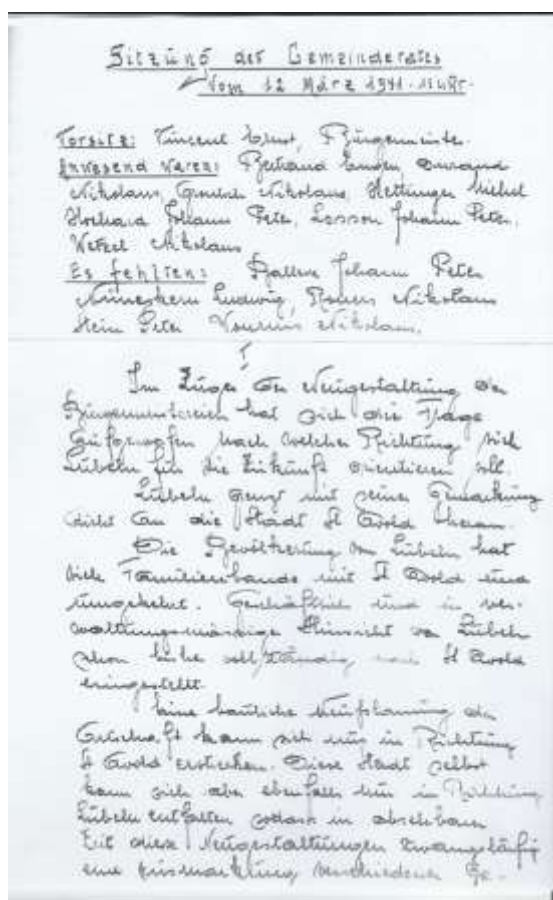 Sitzung des Gemeinderates
vom 12 März 1941. 11 Uhr.
Vorsitz: Vincent Ernst, Bürgermeister.
Anwesend waren: Bertrand Eugen,
Nikolaus, Nikolaus, Hettinger Michel
Johann Peter, Losson Johann Peter,
Wetzel Nikolaus
Es fehlten: Johann Peter
Ludwig, Nikolaus
Hein Peter Nikolaus.
Im Zuge der Neugestaltung der
Bürgermeistereien hat sich die Frage
aufgeworfen nach welcher Richtung sich
Lübeln für die Zukunft orientieren soll.
Lübeln grenzt mit seiner Gemarkung
dicht an die Stadt St Avold heran.
Die Bevölkerung von Lübeln hat
viele Familienbande mit St Avold und
umgekehrt. Geschäftlich und in ver-
waltungsmässige Hinsicht war Lübeln
schon früher vollständig nach St Avold
eingestellt.
Eine bauliche Neuplanung der
Ortschaft kann sich nur in Richtung
St Avold erstrecken. Diese Stadt selbst
kann sich aber ebenfalls nur in Richtung
Lübeln entfalten sodass in absehbarer
Zeit diese Neugestaltungen zwangsläufig
eine Ausmarkung verschiedener Ge-